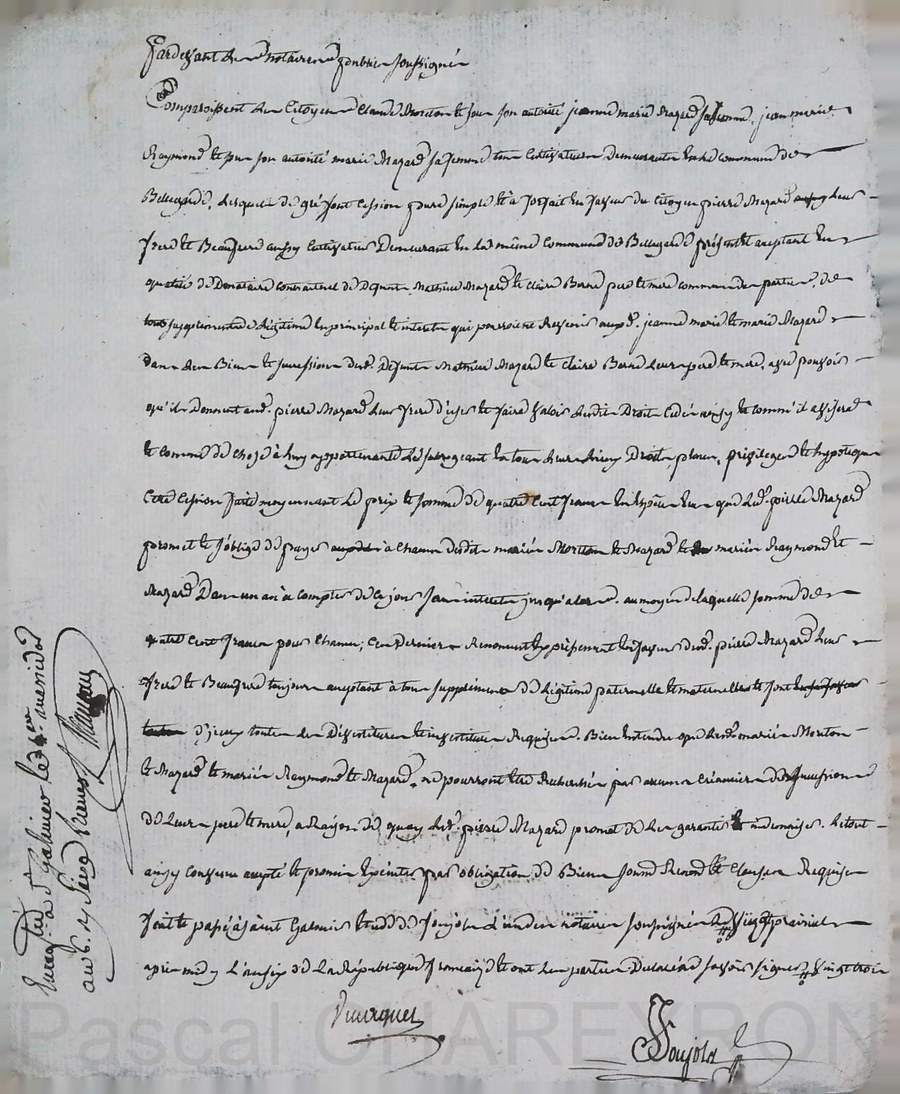 Pardevant les notaires publics soussignés
Comparoissent les Citoyens Claude Moriton et sous son autorité jeanne marie Mazard sa femme, jean marie
Raymond et sous son autorité marie Mazard sa femme tous Cultivateurs demeurants en la commune de
Bellegarde, lesquels de gré font cession pure simple et à forfait en faveur du Citoyen pierre Mazard leur
frere et Beaufrere aussy Cultivateur Demeurant en la même Commune de Bellegarde présent et aceptant en
qualité de Donataire contractuel de Défunts Mathieu Mazard et Claire Berne pere et mere commune des parties, de
tous supplements de légitime en principal et interets qui pourroient Revenir auxd. jeanne marie et marie Mazard
dans les Biens et succession desd. Défunts Mathieu Mazard et Claire Berne leurs pere et mere, avec pouvoir
qu'ils Donnent aud. pierre Mazard leur frere d'user et faire valoir lesdits Droits cedés ainsy et comme il avisera
et comme de chose à luy appartenante le subrogeant en tous leurs lieux, Droits, places, privileges et hypoteques
Cette Cession faite moyennant le prix et somme de quatre Cent francs en espèces que led. pierre Mazard
promet et s'oblige de payer à chacun desdits mariés Moriton et Mazard et mariés Raymond et
Mazard Dans un an à compter de ce jour sans interets jusqu'alors. au moyen de laquelle somme de
quatre Cent francs pour chacun, Ces Derniers Renoncent Expressement en faveur dud. pierre Mazard leur
frere et Beaufrere toujours aceptant à tous supplements de légitime paternelle et maternelle et font
d'iceux toutes les Dévestitures et investitures Requises. Bien entendu que lesd. mariés Moriton
et Mazard et mariés Raymond et Mazard, ne pourront etre Recherchés par aucuns Créanciers des successions
de leurs pere et mere, a Raison de quoy led. pierre Mazard promet de les garantir et indemniser. Le tout
ainsy convenu accepté et promis Exécuter par obligation de Biens soumis Renoncé et Clauses Requises
fait et passé à saint Galmier Etude de Soujols l'un des notaires soussignés le vingt prairial
après midy l'an six de La République française et ont les parties Déclaré ne savoir signer vingt trois
Soujols
Enregistré à St Galmier le messidor
an 6.
Pascal CHAREYRON